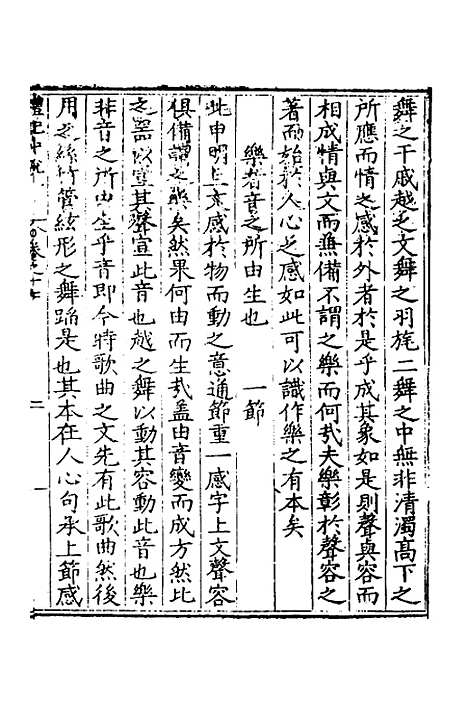 舞之干戚越之文舞之羽旄二舞之中無非清濁高下之
所應而情之感於外者於是乎成其象如是則聲與容而
相成情與文而兼備不謂之樂而何哉夫樂彰於聲容之
著而始於人心之感如此可以識作樂之有本矣
樂者音之所由生也　一節
此申明上文感於物而動之意通節重一感字上文聲容
俱備謂之樂矣然果何由而生哉盖由音變而成方然比
之器以宣其聲宣此音也越之舞以動其容動此音也樂
非音之所由生乎音即今時歌曲之文先有此歌曲然後
用之絲竹管絃形之舞蹈是也其本在人心句承上節感
禮記中說
二